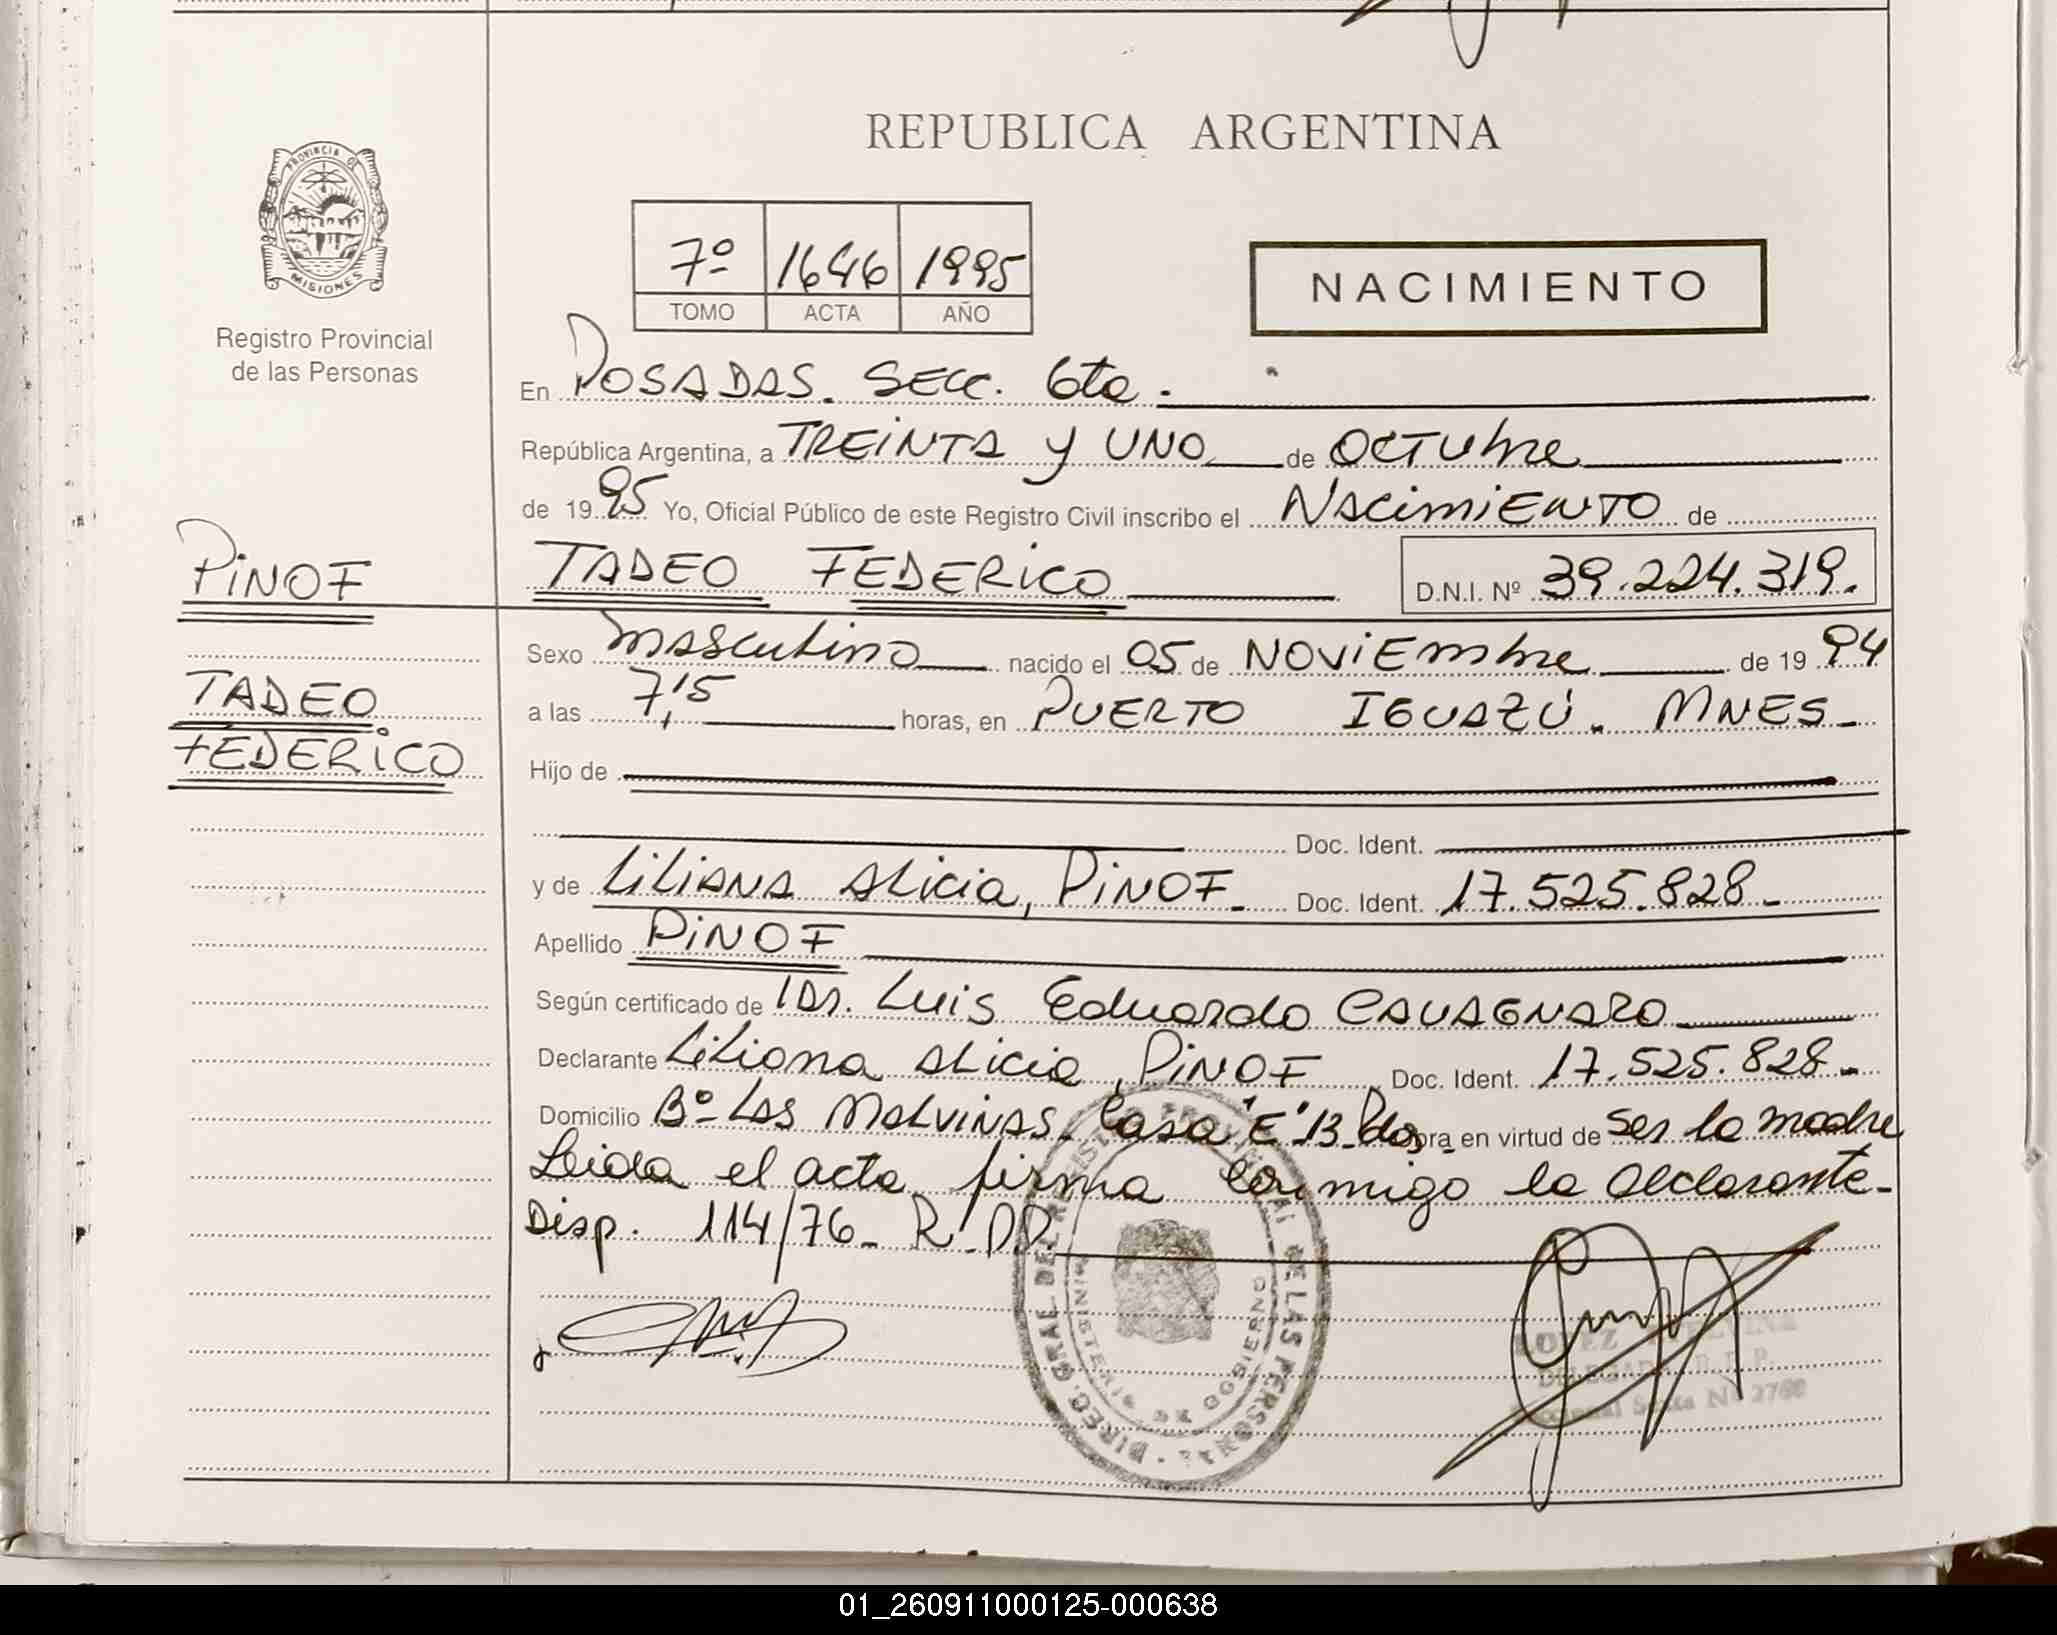 REPUBLICA ARGENTINA
PROVINCIA DE
MISIONES
Registro Provincial
de las Personas
7º 1646 1995
TOMO ACTA AÑO
NACIMIENTO
En POSADAS. SECC. 6ta.
República Argentina, a TREINTA Y UNO de OCTUbre
de 1995 Yo, Oficial Público de este Registro Civil inscribo el NACimiENTO de
PiNOF
TADEO FEDERiCO D.N.I. Nº 39.224.319.
Sexo mASCuLino nacido el 05 de NOViEmbre de 1994
TADEO
FEDERiCO
a las 7,15 horas, en PUERTO IGUAZÚ. MNES-
Hijo de
Doc. Ident.
y de LiLiANA ALicia, PiNOF- Doc. Ident. 17.525.828-
Apellido PiNOF
Según certificado de Dr. Luis Eduardo CAVAGNARO
Declarante LiLiana ALicia, PiNOF Doc. Ident. 17.525.828-
Domicilio Bº LAS MALVINAS- Casa "E" 13-Pdas. obra en virtud de ser la madre
Leida el acta firma conmigo la declarante-
Disp. 114/76- R.P.P.
DIREC. GRAL. DEL REGISTRO PROVINCIAL DE LAS PERSONAS
MINISTERIO DE GOBIERNO
LOPEZ
DELEGADA R. P. P.
Seccional Sexta Nº 2760
01_260911000125-000638